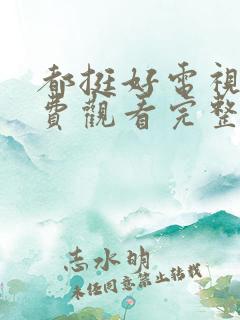 都挺好電視
費觀看完整
志水明
未经同意禁止转载